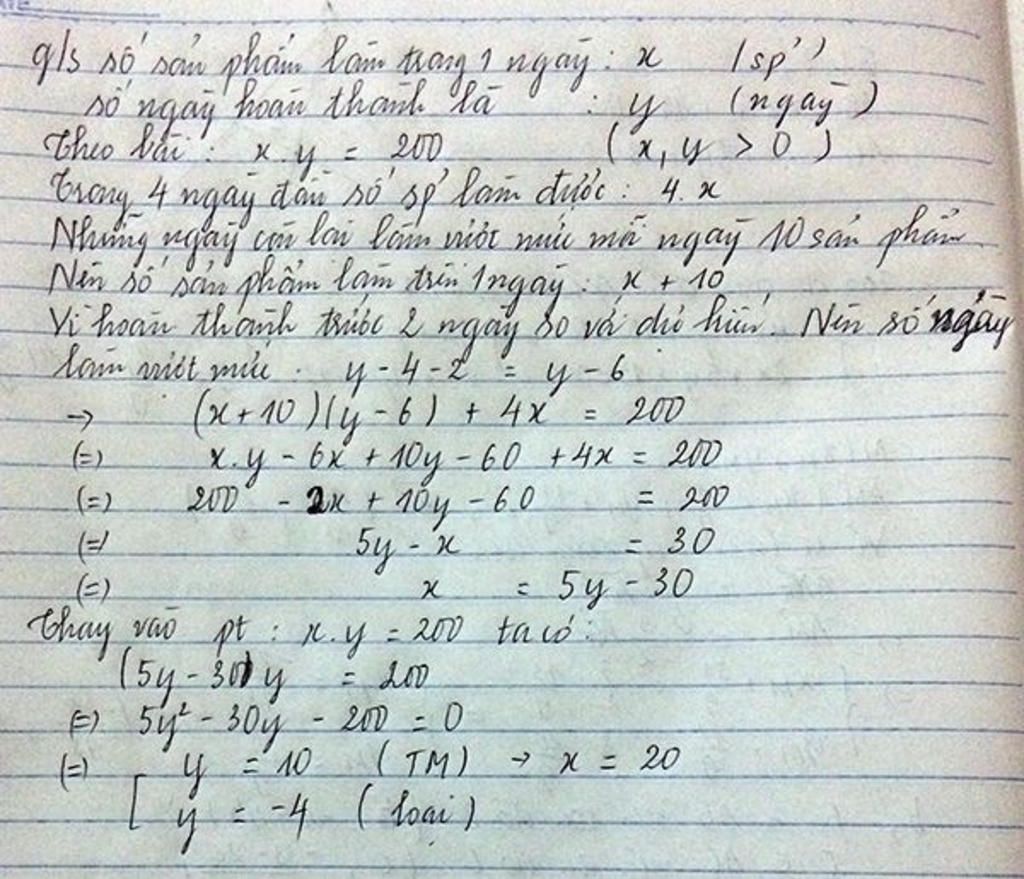 g/s số sản phẩm làm trong 1 ngày : x (sp')
số ngày hoàn thành là : y (ngày)
Theo bài : x.y = 200 (x, y > 0)
Trong 4 ngày đầu số sp' làm được : 4.x
Những ngày còn lại làm vượt mức mỗi ngày 10 sản phẩm
Nên số sản phẩm làm trên 1 ngày : x + 10
Vì hoàn thành trước 2 ngày so với dự kiến. Nên số ngày
làm vượt mức : y - 4 - 2 = y - 6
→ (x + 10)(y - 6) + 4x = 200
(=) x.y - 6x + 10y - 60 + 4x = 200
(=) 200 - 2x + 10y - 60 = 200
(=) 5y - x = 30
(=) x = 5y - 30
Thay vào pt : x.y = 200 ta có :
(5y - 30)y = 200
(=) 5y² - 30y - 200 = 0
(=) y = 10 (TM) → x = 20
[ y = -4 (loại)